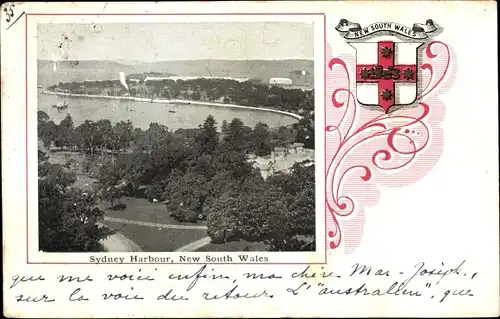 33
NEW SOUTH WALES
Sydney Harbour, New South Wales
que me voici enfin, ma chère Mar-Joseph,
sur la voie du retour. L'"australien", que